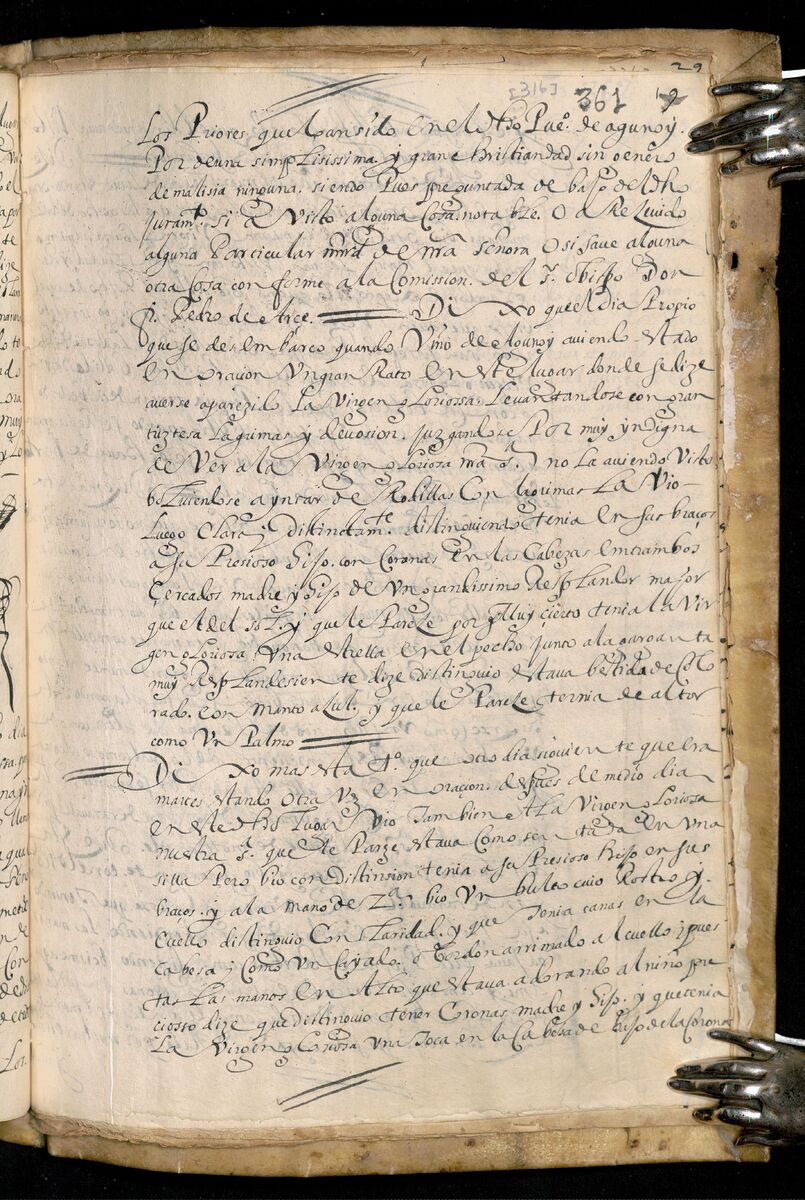 29
[316]
361
19
Los Priores que han sido en el dho Pueo. de agunoy.
Por de una simplisissima y gran christiandad sin genero
de malisia ninguna. siendo Pues pre guntada de bajo del dho
Juramto. si a Visto alguna Cosa notable. O a Resevido
alguna Particular mrd de nra señora O si save alguna
otra Cosa con forme a la Comission. del Sr. obispo Don
fr. Pedro de Arce. Di xo que el dia Propio
que se desembarco quando Vino de agunoy aviendo estado
en oracion Un gran Rato en este lugar donde se dize
averse aparezido La Virgen gloriossa. Levantandose con gran
tristesa Lagrimas y devosion. Juzgandose Por muy yndigna
de Ver a la Virgen gloriosa nra Sa. no la aviendo Visto
bolviendose a yncar de Rodillas Con lagrimas La Vio
Luego Clara y Distinctamte. distinguiendo tenia en sus braços
a su Presioso hijo. con Coronas en las Cabezas emtrambos
Çercados madre y hijo de Un grandissimo Resplandor mayor
que el del sol. y que le Pareze por muy çierto tenia la Vir
gen gloriossa, una estrella en el pecho junto a la garganta
muy Resplandesiente dize distinguio estava bestida de Colo
rado. con manto azul. y que le Pareze ternia de altor
como Un Palmo
Di xo mas esta to. que otro dia siguiente que era
martes estando otra Vez en oraçion. despues de medio dia
en este dho lugar Vio Tambien a La Virgen gloriosa
nuestra Sa. que le Pareze estava Como sentada en una
silla Pero bio con Distinsion tenia a su Presioso hijo en sus
braços. y a la mano de Za. bio Un bulto cuio Rostro y
Cuello distinguio Con Claridad. y que tenia canas en la
Cabesa y Como Un Cayado. o bordon arrimado al cuello y pues
tas Las manos en Alto que estava adorando al niño pre
ciosso dize que distinguio tener Coronas madre y hijo. y que tenia
La Virgen gloriosa una Toca en la Cabesa de bajo de la Corona